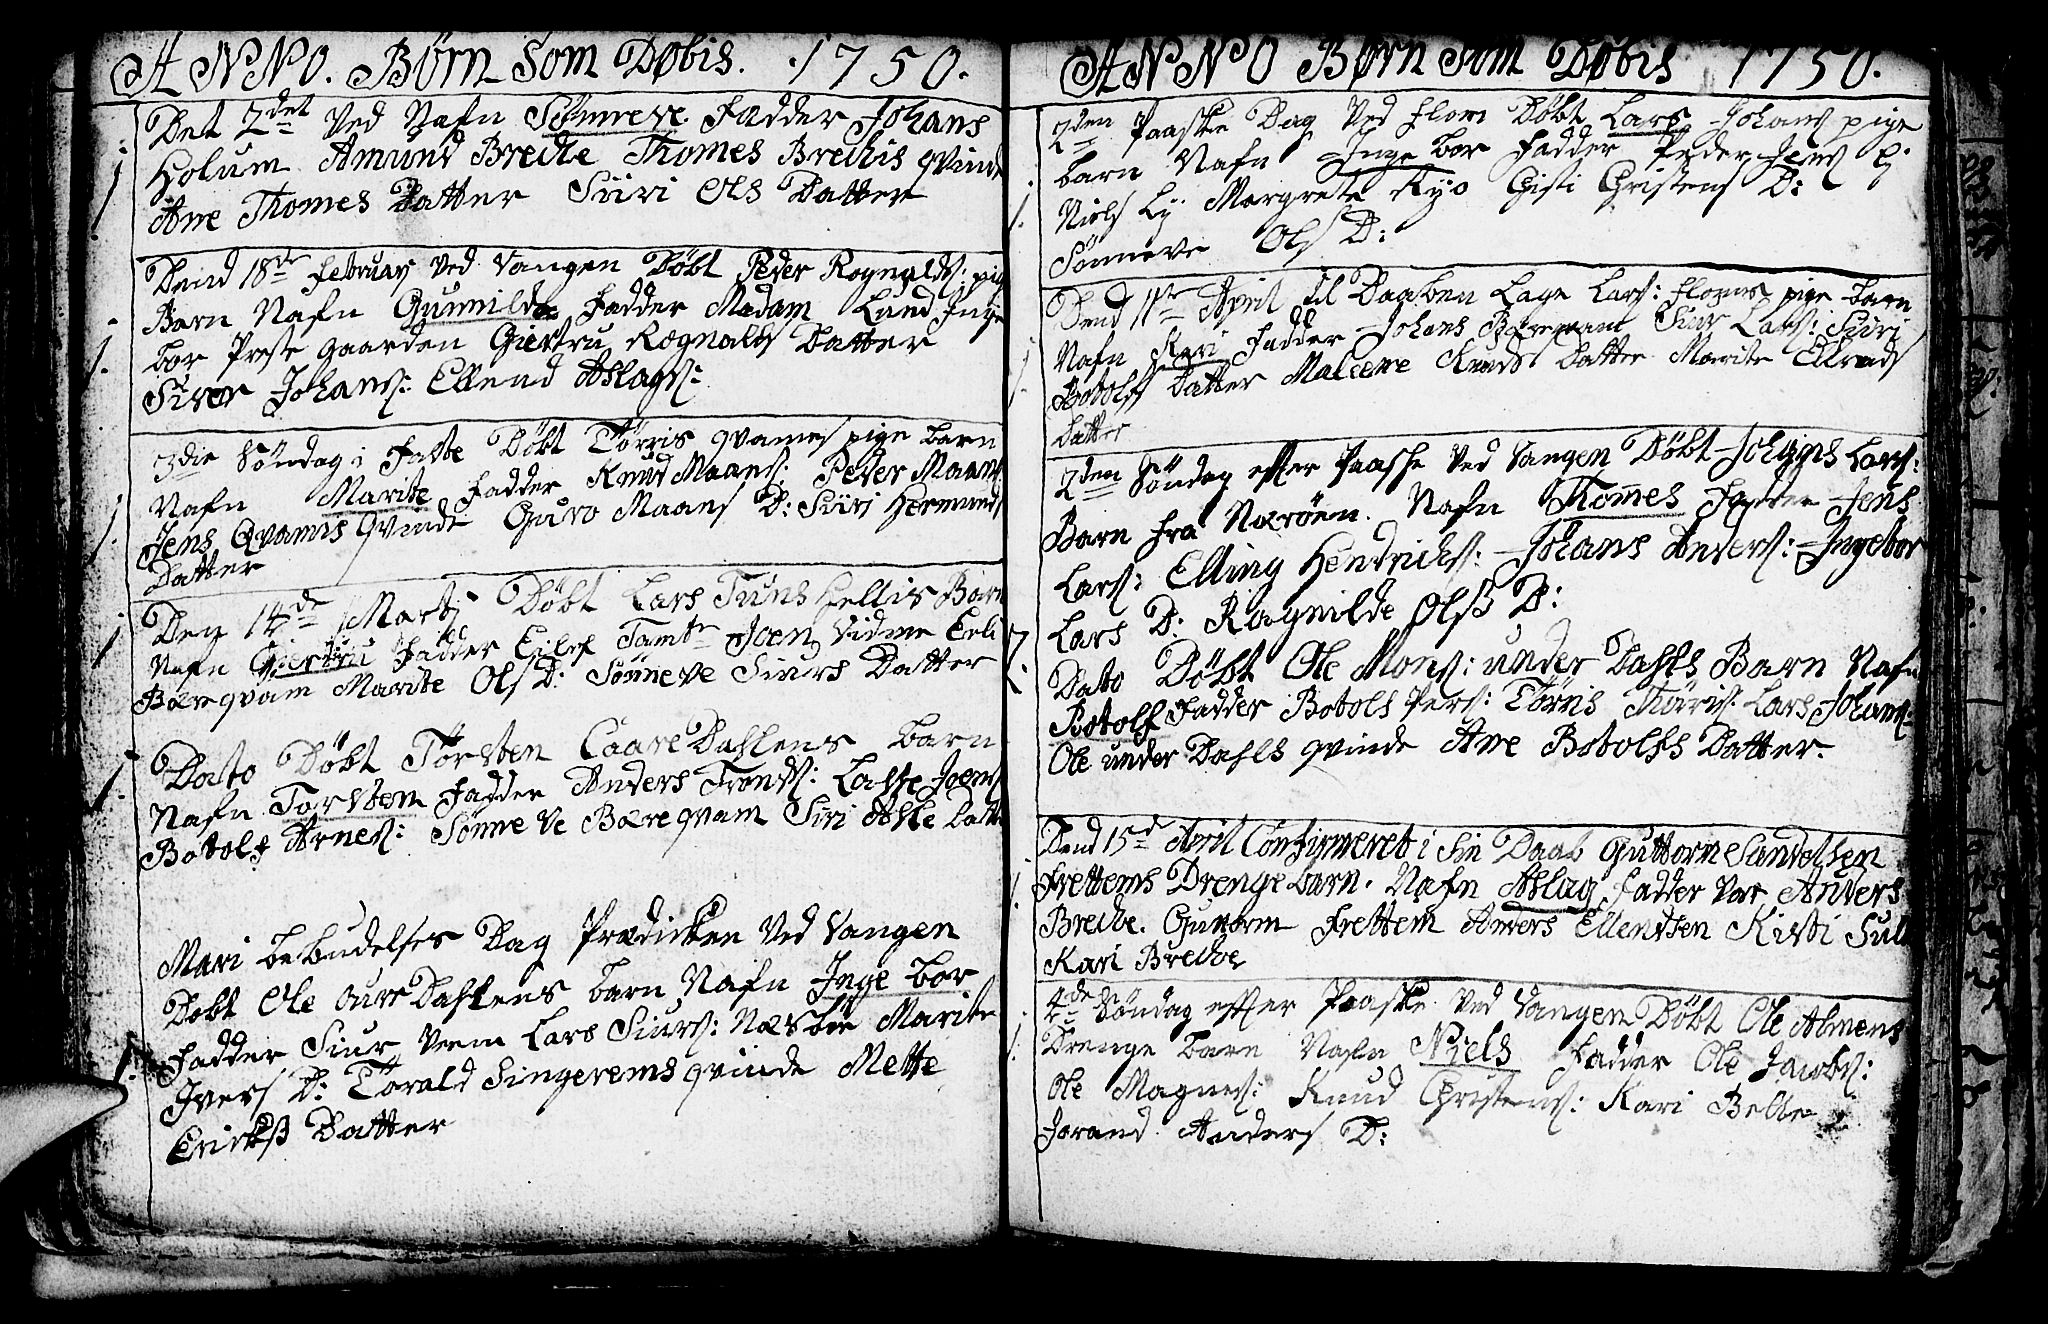 ANNO. Børn Som Døbis. 1750.
Det 2det Ved Nafn Sönneve. Fadder Johans
Holum Amund Breche Thomes Brechis qvinde
Ane Thomes Datter Siiri Ols Datter
Dend 18de February Ved Vangen Döbt Peder Rognalds: pige
Barn Nafn Gunnilda Fadder Madam Lund Inge
bor Preste gaarden Giertru Rognalds Datter
Siver Johans: Ellend Aslags:
3die Söndag i Faste Döbt Törris qvames pige barn
Nafn Marite Fadder Knud Maans: Peder Maans:
Jens Qvamis qvinde Guro Maans D: Siiri Hermunds
Datter
Den 14de Marti Döbt Lars Tuns Hellis Barn
Nafn Giertru Fadder Eilef Joen Vidme Erli
Bæreqvam Marite Ols D: Sönneve Siurs Datter
Dato Döbt Törsten Caare Dahlens barn
Nafn Torstem Fadder Anders Tronds: Lasse Joens
Botolf Arnes: Sönneve Bæreqvam Siri Aske Datter
Mari bebudelses Dag Prædicken Ved Vangen
Döbt Ole Aure Dahlens barn Nafn Inge bor
Fadder Siur Veem Lars Siurs: Næsböe Marite
Ivers D: Torald Singerems qvinde Mette
Erickß Datter
ANNO Børn Som Døbis 1750.
2den Paaske Dag Ved Flom Döbt Lars Johans pige
barn Nafn Inge bor Fadder Peder Jens Ej
Niels Ly Margrete Ryo Gisti Christens D:
Sönneve Ols D:
Dend 11te April til Daaben Lage Lars: Floms pige barn
Nafn Kari Fadder Johans Bæreqvam Siur Lars: Siiri
Botolfs Datter Maleene Knuds Datter Marite Ellends
Datter
2den Söndag efter Paaske Ved Vangen Döbt Johans Lars:
Barn fra Næröen. Nafn Thomes Fadder Jens
Lars: Elling Hendrichs: Johans Anders: Ingebor
Lars D: Ragnilde Olß D:
Dato Döbt Ole Mons: under Dahls Barn Nafn
Botolf Fadder Botols Pers: Törris Thöris: Lars Johans:
Ole under Dahls qvinde Ane Botolfs Datter.
Dend 15de April Confirmeret i Sin Daab Guttorm
Frettems Drenge barn. Nafn Aslag Fadder var Anders
Breche. Guttorm Frettem Anders Ellendsen Kisti
Kari Breche
4de Söndag efter Paaske Ved Vangen Döbt Ole Almens
Drenge barn Nafn Niels Fadder Ole Jacobs:
Ole Magnes: Knud Christens: Kari Belle
Jorand Anders D: